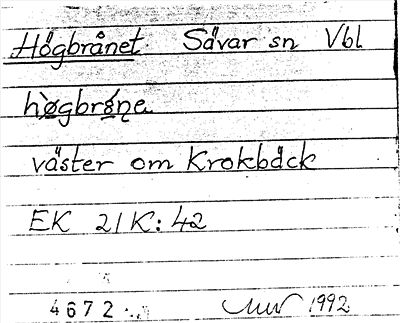 Högbrånet Sävar sn Vbl
hø̀gbrǫ́ne
väster om Krokbäck
EK 21K:42
4672 1992